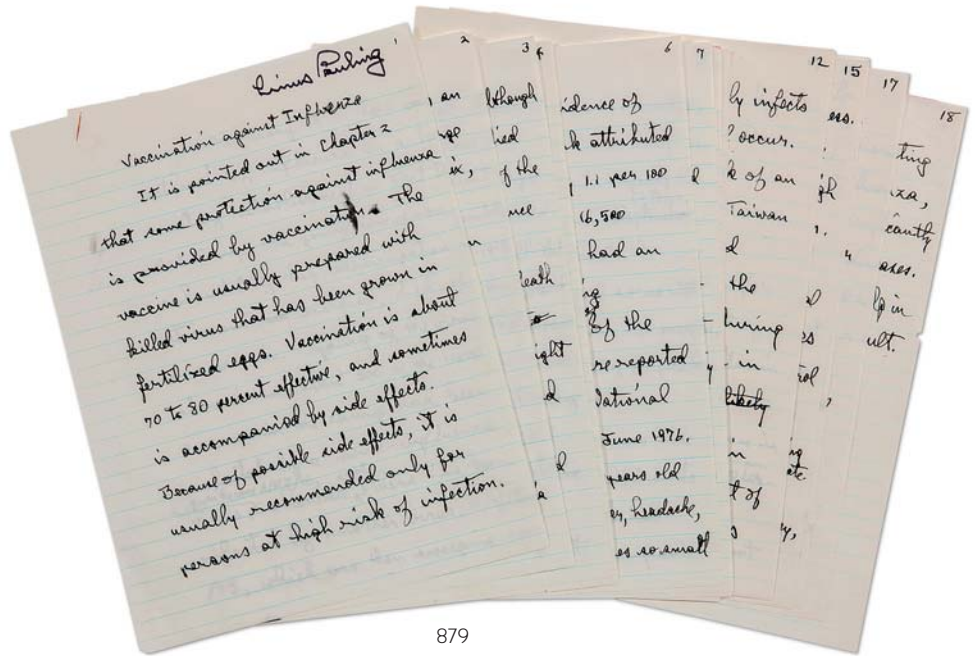 Linus Pauling 1
Vaccination against Influenza
It is pointed out in Chapter 2
that some protection against influenza
is provided by vaccination. The
vaccine is usually prepared with
killed virus that has been grown in
fertilized eggs. Vaccination is about
70 to 80 percent effective, and sometimes
is accompanied by side effects.
Because of possible side effects, it is
usually recommended only for
persons at high risk of infection.
2
, an
3
4
lthough
lied
of the
nce
eath
ight
d
6
idence of
k attributed
1.1 per 100
16,500
had an
ng
of the
re reported
National
June 1976.
years old
er, headache,
es so small
7
d
12
ly infects
? occur.
k of an
Taiwan
d
the
during
- in
likely
n
t of
15
ess.
gh
17
18
ting
za,
cantly
axes.
lp in
ult.
879